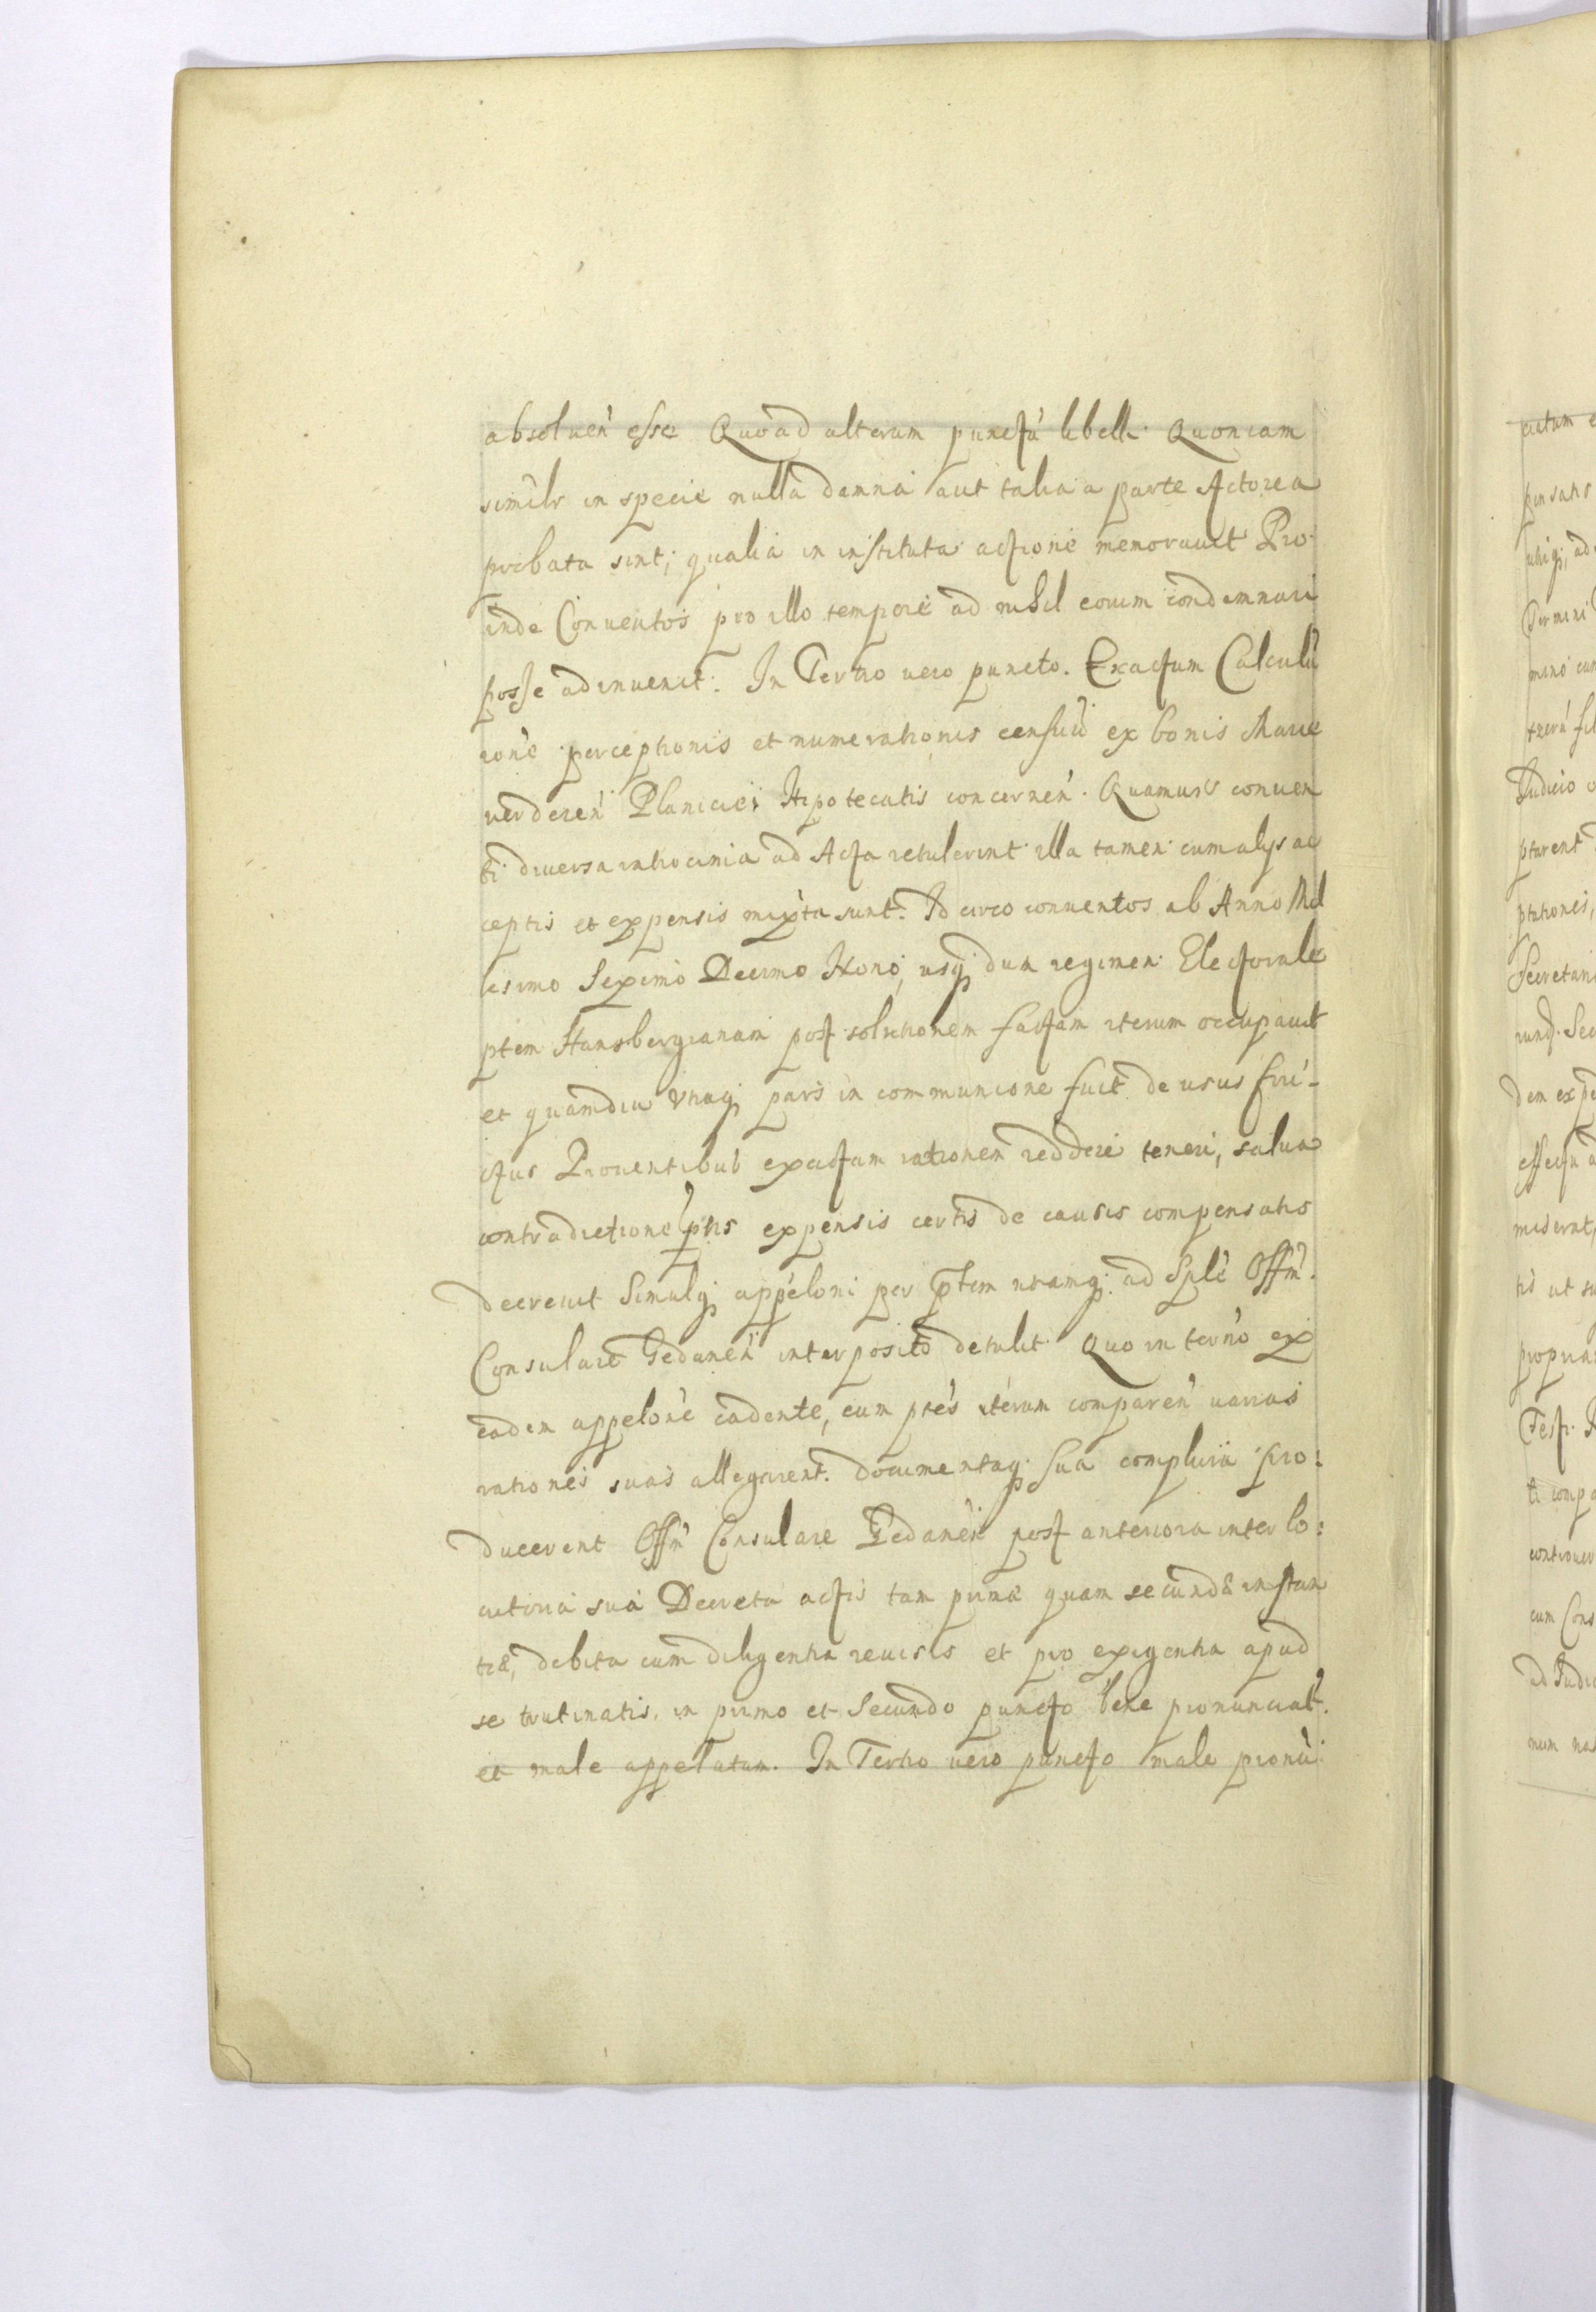 absoluen̄ esse Quoad alterum punctū libelli. Quoniam
similr in specie nulla damna aut talia a parte Actorea
probata sint; qualia in instituta actione memorauit Pro
inde Conuentos pro illo tempore ad nihil eorum condemnari
posse adinuenit. In Tertio uero puncto. Exactum Calculū
rone perceptionis et numerationis censuū ex bonis Marie
uerderen̄ Planiciei Hipotecatis concernen̄. Quamuis conuen
ti diuersa ratiocinia ad Acta retulerint illa tamen cum alys ac
ceptis et expensis mixta sunt. Id circo conuentos ab Anno Mil
lesimo Sexcmo Decimo Nono, usq; dum regimen Electorale
ptem Hansbergianam post solutionem factam iterum occupauit
et quamdiu vtraq; pars in communione fuit de usus fru-
ctus Prouentibus exactam rationem reddere teneri, salua
contradictione ptis expensis certis de causis compensatis
decreuit Simulq; appeloni per ptem utramq; ad Sple Offm.
Consulare Gedanen̄ interposite detulit. Quo in terno ex
eadem appelone cadente, cum ptes iterum comparen̄ uarias
rationes suas allegarent. documentaq; sua complura pro:
ducerent Offm Consulare Gedanen̄ post anteriora interlo:
cutoria sua Decreta actis tam prima quam secundæ instan
tiæ, debita cum diligentia reuisis et pro exigentia apud
se trutinatis, in primo et Secundo puncto bene pronunciat.
et male appellatum. In Tertio uero puncto male pronū: